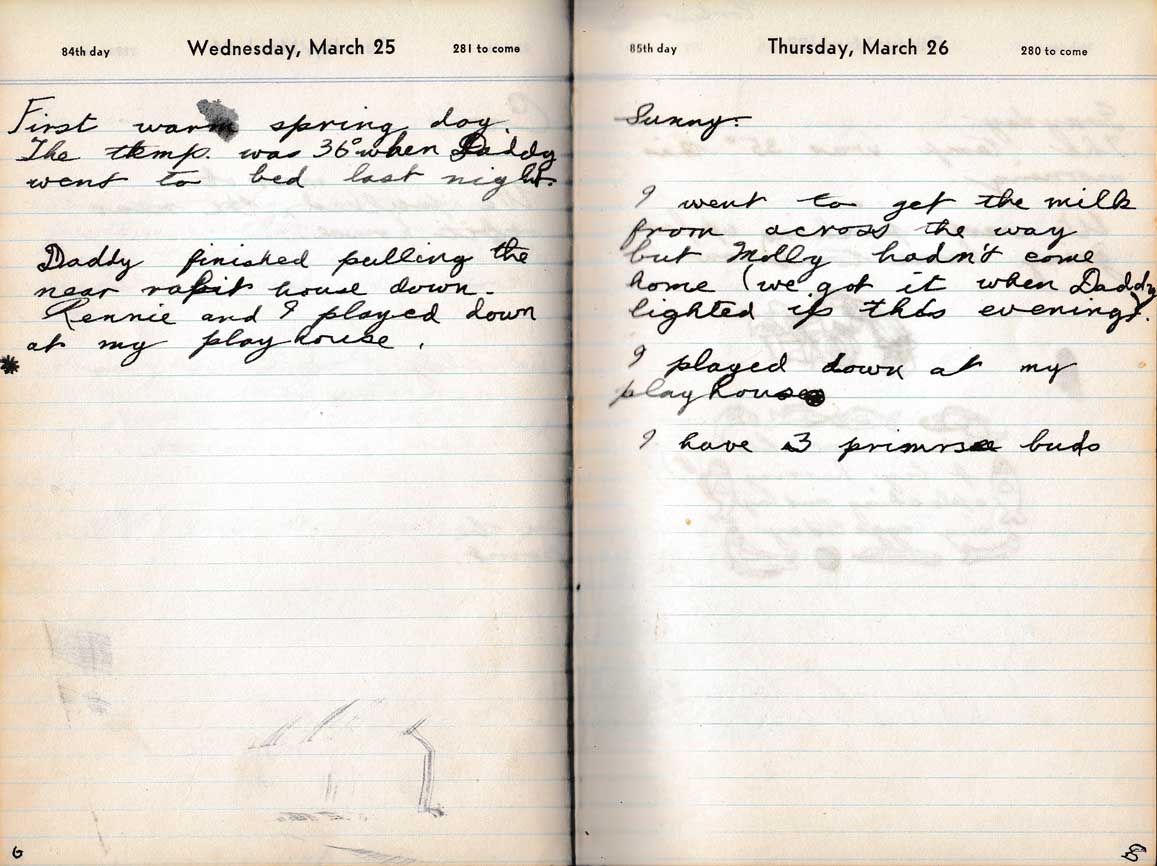 84th day Wednesday, March 25 281 to come
First warm spring day.
The temp. was 36° when Daddy
went to bed last night.
Daddy finished pulling the
near rabit house down.
Rennie and I played down
at my playhouse.
6
85th day Thursday, March 26 280 to come
Sunny.
I went to get the milk
from across the way
but Milly hadn't come
home (we got it when Daddy
lighted up this evening).
I played down at my
playhouse
I have 3 primrse buds